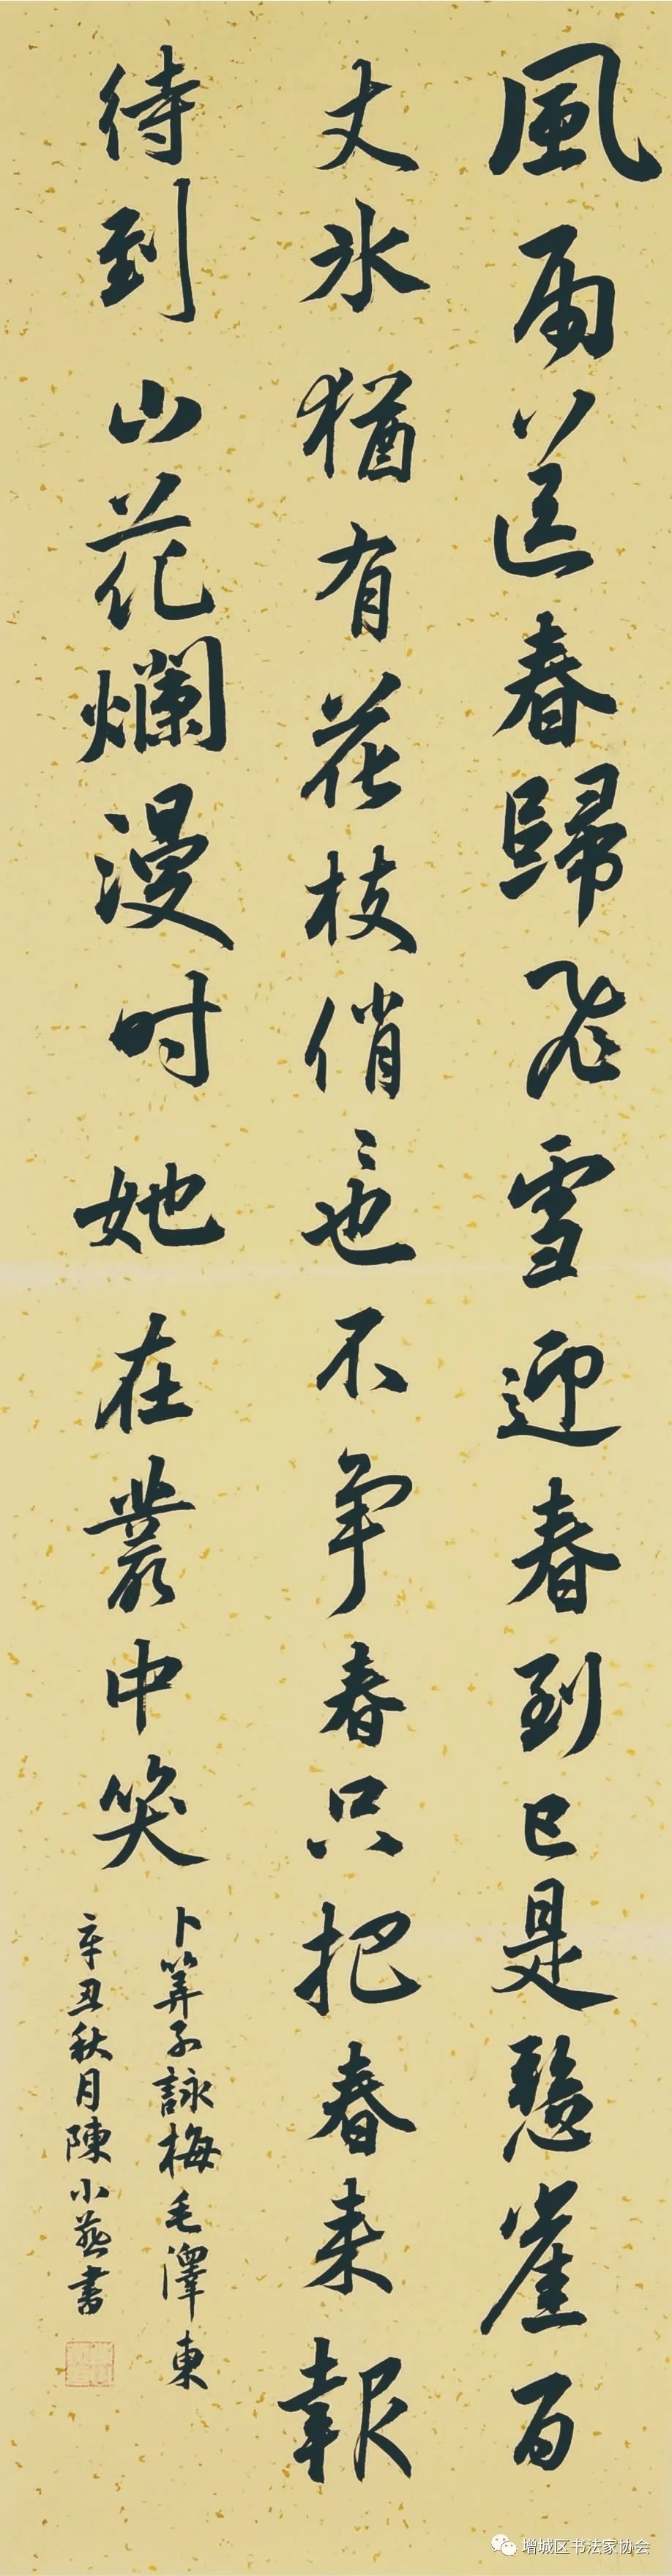 風雨送春歸飛雪迎春到已是懸崖百
丈冰猶有花枝俏俏也不争春只把春来報
待到山花爛漫时她在叢中笑
卜算子詠梅毛澤東
辛丑秋月陳小燕書
增城区书法家协会